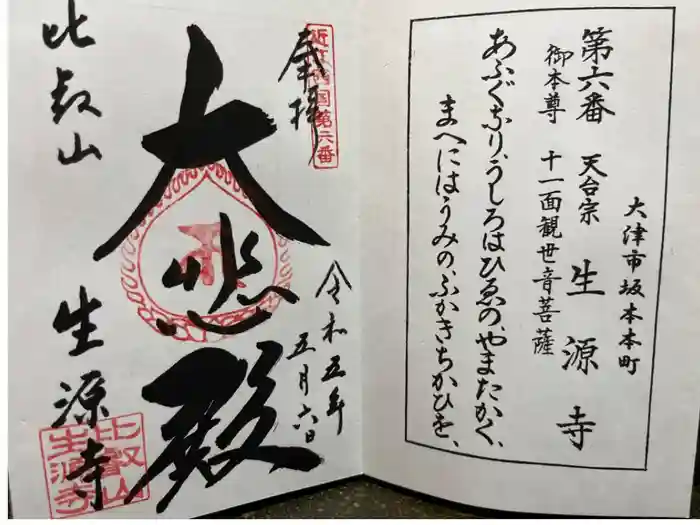 大津市坂本本町
第六番 天台宗 生源寺
御本尊 十一面観世音菩薩
あふぐなり、うしろはひゑの、やまたかく、
まへにはうみの、ふかきちかひを、
奉拝
近江西国第六番
令和五年
五月六日
大悲殿
比叡山
生源寺
比叡山
生源寺